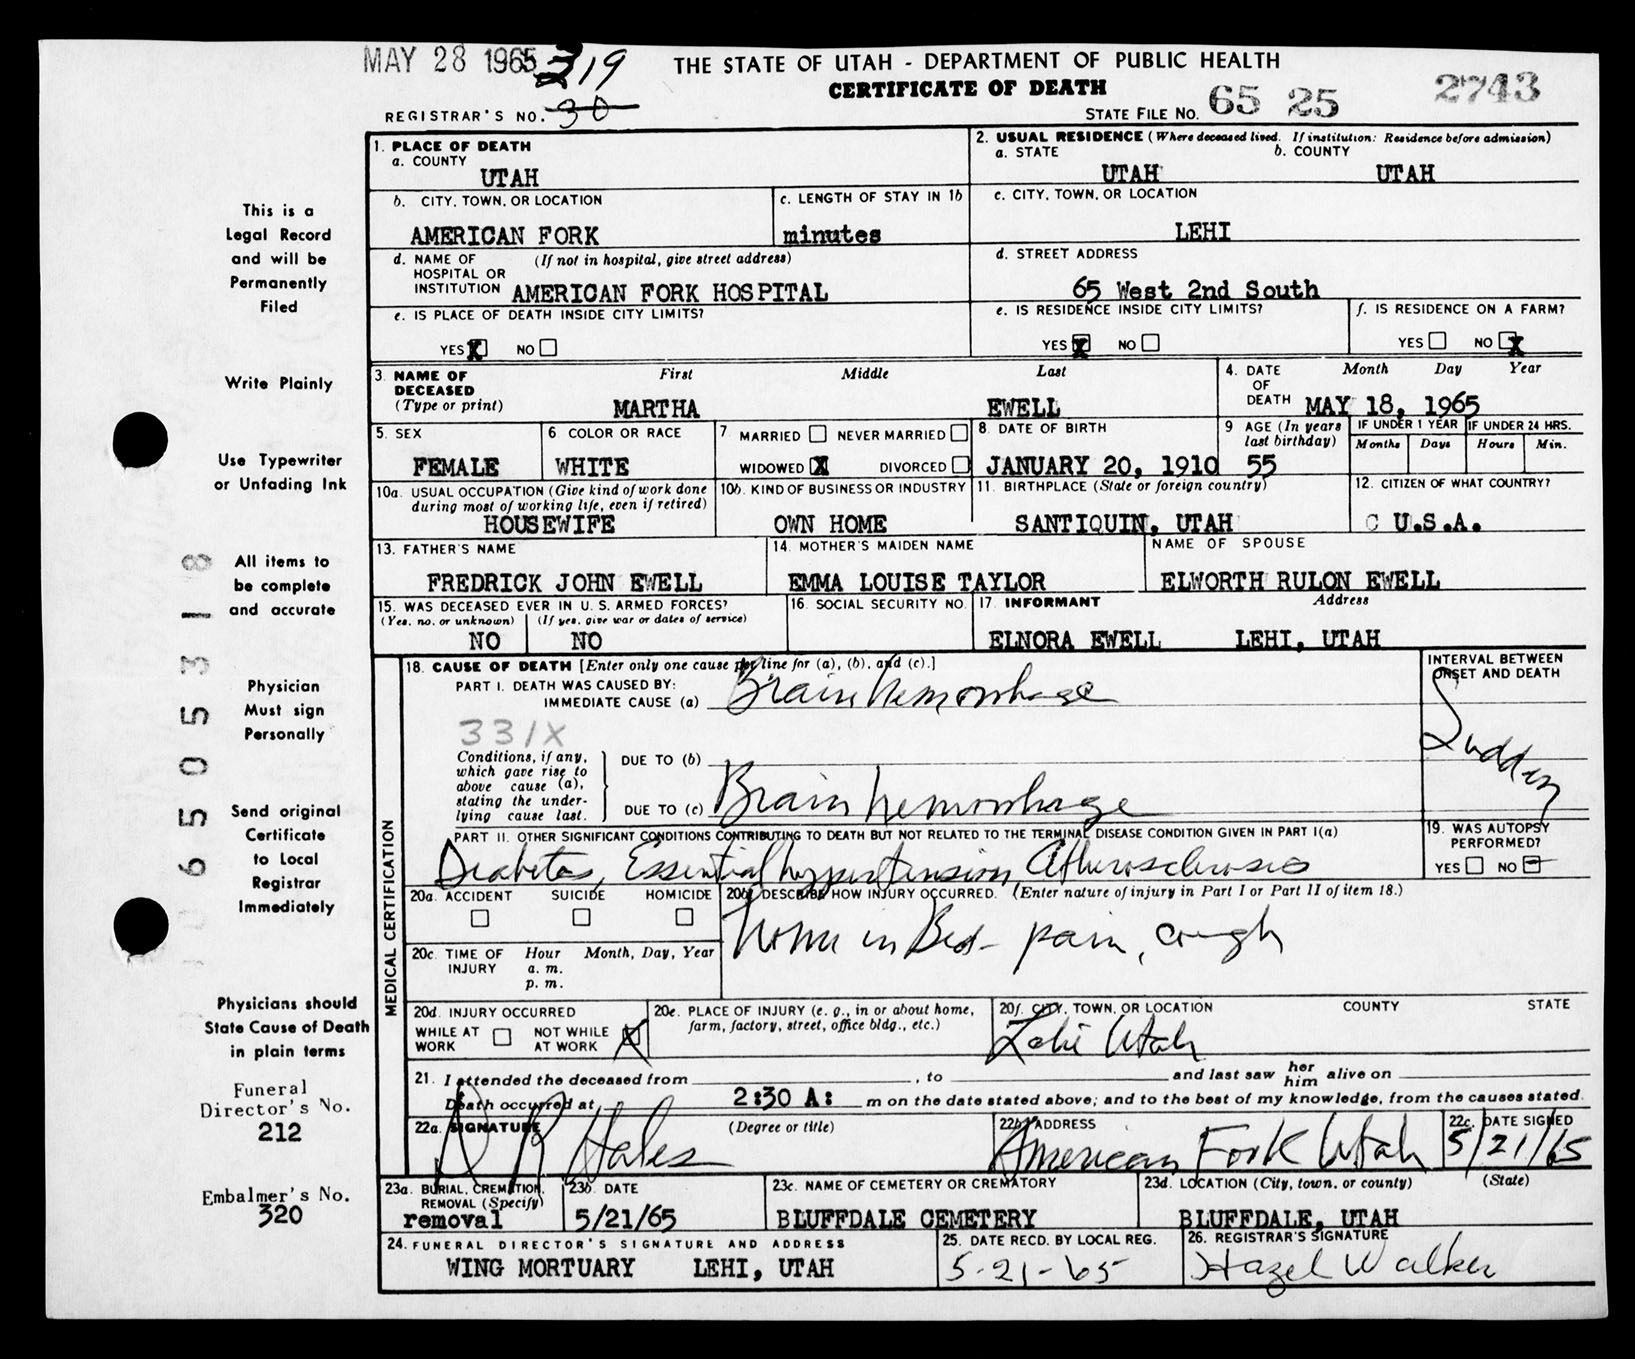 MAY 28 1965 319
THE STATE OF UTAH - DEPARTMENT OF PUBLIC HEALTH
CERTIFICATE OF DEATH
REGISTRAR'S NO. 30
STATE FILE NO. 65 25 2743
This is a
Legal Record
and will be
Permanently
Filed
Write Plainly
Use Typewriter
or Unfading Ink
All items to
be complete
and accurate
Physician
Must sign
Personally
Send original
Certificate
to Local
Registrar
Immediately
Physicians should
State Cause of Death
in plain terms
Funeral
Director's No.
212
Embalmer's No.
320
1. PLACE OF DEATH
a. COUNTY
UTAH
2. USUAL RESIDENCE (Where deceased lived. If institution: Residence before admission)
a. STATE b. COUNTY
UTAH UTAH
b. CITY, TOWN, OR LOCATION
AMERICAN FORK
c. LENGTH OF STAY IN 1b
minutes
c. CITY, TOWN, OR LOCATION
LEHI
d. NAME OF (If not in hospital, give street address)
HOSPITAL OR
INSTITUTION AMERICAN FORK HOSPITAL
d. STREET ADDRESS
65 West 2nd South
e. IS PLACE OF DEATH INSIDE CITY LIMITS?
YES X NO
e. IS RESIDENCE INSIDE CITY LIMITS?
YES X NO
f. IS RESIDENCE ON A FARM?
YES NO X
3. NAME OF First Middle Last
DECEASED
(Type or print) MARTHA EWELL
4. DATE Month Day Year
OF
DEATH MAY 18, 1965
5. SEX
FEMALE
6 COLOR OR RACE
WHITE
7. MARRIED NEVER MARRIED
WIDOWED X DIVORCED
8. DATE OF BIRTH
JANUARY 20, 1910
9 AGE (In years
last birthday)
55
IF UNDER 1 YEAR IF UNDER 24 HRS.
Months Days Hours Min.
10a. USUAL OCCUPATION (Give kind of work done
during most of working life, even if retired)
HOUSEWIFE
10b. KIND OF BUSINESS OR INDUSTRY
OWN HOME
11. BIRTHPLACE (State or foreign country)
SANTIQUIN, UTAH
12. CITIZEN OF WHAT COUNTRY?
C U.S.A.
13. FATHER'S NAME
FREDRICK JOHN EWELL
14. MOTHER'S MAIDEN NAME
EMMA LOUISE TAYLOR
NAME OF SPOUSE
ELWORTH RULON EWELL
15. WAS DECEASED EVER IN U. S. ARMED FORCES?
(Yes, no, or unknown) (If yes, give war or dates of service)
NO NO
16. SOCIAL SECURITY NO.
17. INFORMANT Address
ELNORA EWELL LEHI, UTAH
MEDICAL CERTIFICATION
18. CAUSE OF DEATH [Enter only one cause per line for (a), (b), and (c).]
PART I. DEATH WAS CAUSED BY:
IMMEDIATE CAUSE (a) Brain hemorrhage
INTERVAL BETWEEN
ONSET AND DEATH
Sudden
331X
Conditions, if any,
which gave rise to
above cause (a),
stating the under-
lying cause last.
DUE TO (b)
DUE TO (c) Brain hemorrhage
PART II. OTHER SIGNIFICANT CONDITIONS CONTRIBUTING TO DEATH BUT NOT RELATED TO THE TERMINAL DISEASE CONDITION GIVEN IN PART I(a)
Diabetes, Essential hypertension Atherosclerosis
19. WAS AUTOPSY
PERFORMED?
YES NO
20a. ACCIDENT SUICIDE HOMICIDE
20b. DESCRIBE HOW INJURY OCCURRED. (Enter nature of injury in Part I or Part II of item 18.)
home in Bed - pain, cough
20c. TIME OF Hour Month, Day, Year
INJURY a. m.
p. m.
20d. INJURY OCCURRED
WHILE AT NOT WHILE
WORK AT WORK X
20e. PLACE OF INJURY (e. g., in or about home,
farm, factory, street, office bldg., etc.)
20f. CITY, TOWN, OR LOCATION COUNTY STATE
Lehi Utah
21. I attended the deceased from , to and last saw her him alive on
Death occurred at 2:30 A: m on the date stated above; and to the best of my knowledge, from the causes stated.
22a. SIGNATURE (Degree or title)
22b. ADDRESS
American Fork Utah
22c. DATE SIGNED
5/21/65
23a. BURIAL, CREMATION,
REMOVAL (Specify)
removal
23b. DATE
5/21/65
23c. NAME OF CEMETERY OR CREMATORY
BLUFFDALE CEMETERY
23d. LOCATION (City, town, or county) (State)
BLUFFDALE, UTAH
24. FUNERAL DIRECTOR'S SIGNATURE AND ADDRESS
WING MORTUARY LEHI, UTAH
25. DATE RECD. BY LOCAL REG.
5-21-65
26. REGISTRAR'S SIGNATURE
Hazel Walker